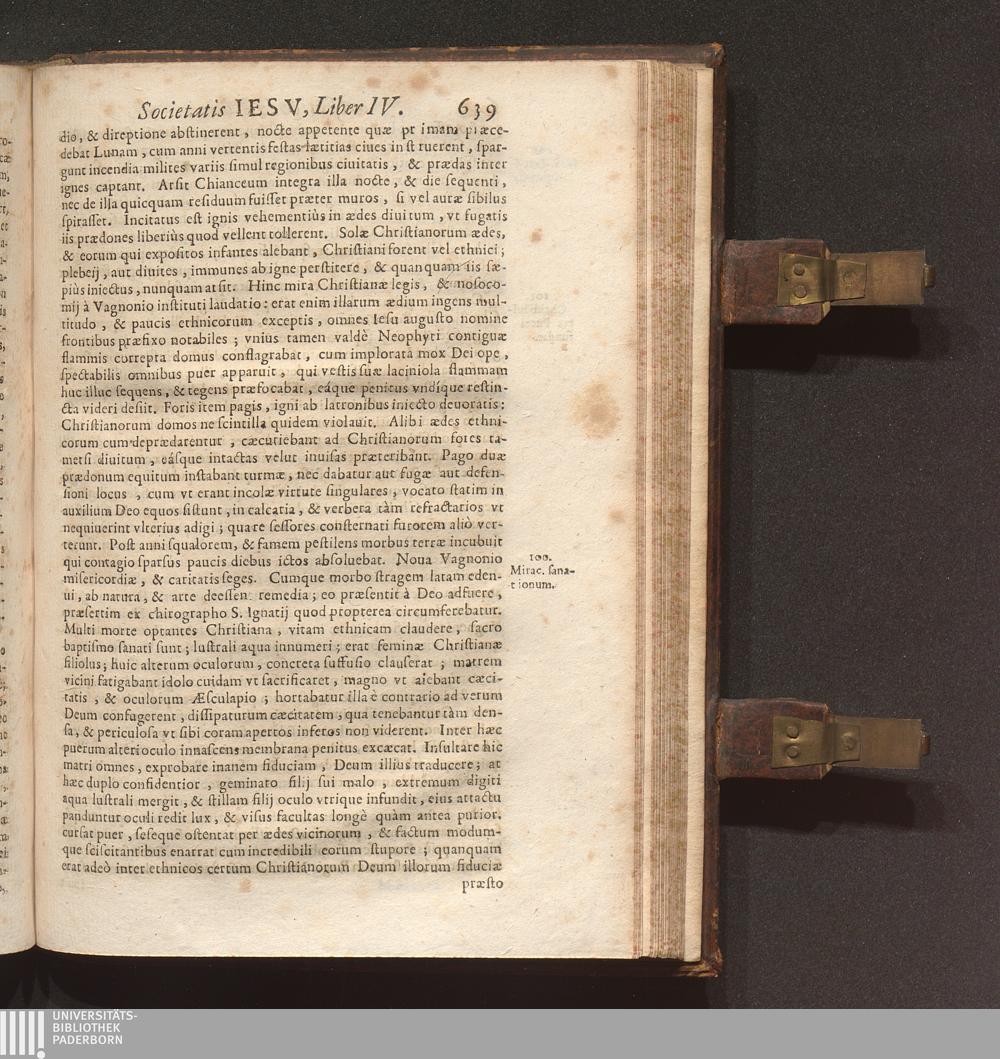 Societatis IESV, Liber IV. 639
dio, & direptione abſtinerent, nocte appetente quæ pr imam præce-
debat Lunam, cum anni vertentis feſtas lætitias ciues inſt ruerent, ſpar-
gunt incendia milites variis ſimul regionibus ciuitatis, & prædas inter
ignes captant. Arſit Chianceum integra illa nocte, & die ſequenti,
nec de illa quicquam reſiduum fuiſſet præter muros, ſi vel auræ ſibilus
ſpiraſſet. Incitatus eſt ignis vehementiùs in ædes diuitum, vt fugatis
iis prædones liberiùs quod vellent tollerent. Solæ Chriſtianorum ædes,
& eorum qui expoſitos infantes alebant, Chriſtiani forent vel ethnici;
plebeij, aut diuites, immunes ab igne perſtitere, & quanquam iis ſæ-
piùs iniectus, nunquam arſit. Hinc mira Chriſtianæ legis, & noſoco-
mij à Vagnonio inſtituti laudatio: erat enim illarum ædium ingens mul-
titudo, & paucis ethnicorum exceptis, omnes Ieſu auguſto nomine
frontibus præfixo notabiles; vnius tamen valdè Neophyti contiguæ
flammis correpta domus conflagrabat, cum implorata mox Dei ope,
ſpectabilis omnibus puer apparuit, qui veſtis ſuæ laciniola flammam
huc illuc ſequens, & tegens præfocabat, eáque penitus vndíque reſtin-
cta videri deſiit. Foris item pagis, igni ab latronibus iniecto deuoratis:
Chriſtianorum domos ne ſcintilla quidem violauit. Alibi ædes ethni-
corum cum deprædarentur, cæcutiebant ad Chriſtianorum fores ta-
metſi diuitum, eáſque intactas velut inuiſas præteribant. Pago duæ
prædonum equitum inſtabant turmæ, nec dabatur aut fugæ aut defen-
ſioni locus, cum vt erant incolæ virtute ſingulares, vocato ſtatim in
auxilium Deo equos ſiſtunt, in calcaria, & verbera tàm refractarios vt
nequiuerint vlterius adigi; quare ſeſſores conſternati furorem aliò ver-
terunt. Poſt anni ſqualorem, & famem peſtilens morbus terræ incubuit
qui contagio ſparſus paucis diebus ictos abſoluebat. Noua Vagnonio
miſericordiæ, & caritatis ſeges. Cumque morbo ſtragem latam eden-
ui, ab natura, & arte deeſſen. remedia; eo præſentit à Deo adfuere,
præſertim ex chirographo S. Ignatij quod propterea circumferebatur.
Multi morte optantes Chriſtiana, vitam ethnicam claudere, ſacro
baptiſmo ſanati ſunt; luſtrali aqua innumeri; erat feminæ Chriſtianæ
filiolus; huic alterum oculorum, concreta ſuffuſio clauſerat; matrem
vicini fatigabant idolo cuidam vt ſacrificaret, magno vt aiebant cæci-
tatis, & oculorum Æſculapio; hortabatur illa è contrario ad verum
Deum confugerent, diſſipaturum cæcitatem, qua tenebantur tàm den-
ſa, & periculoſa vt ſibi coram apertos inferos non viderent. Inter hæc
puerum alteri oculo innaſcens membrana penitus excæcat. Inſultare hic
matri omnes, exprobare inanem fiduciam, Deum illius traducere; at
hæc duplo confidentior, geminato filij ſui malo, extremum digiti
aqua luſtrali mergit, & ſtillam filij oculo vtrique infundit, eius attactu
panduntur oculi redit lux, & viſus facultas longè quàm antea purior.
curſat puer, ſeſeque oſtentat per ædes vicinorum, & factum modum-
que ſciſcitantibus enarrat cum incredibili eorum ſtupore; quanquam
erat adeò inter ethnicos certum Chriſtianorum Deum illorum fiduciæ
præſto
100.
Mirac. ſana-
tionum.
UNIVERSITÄTS-
BIBLIOTHEK
PADERBORN